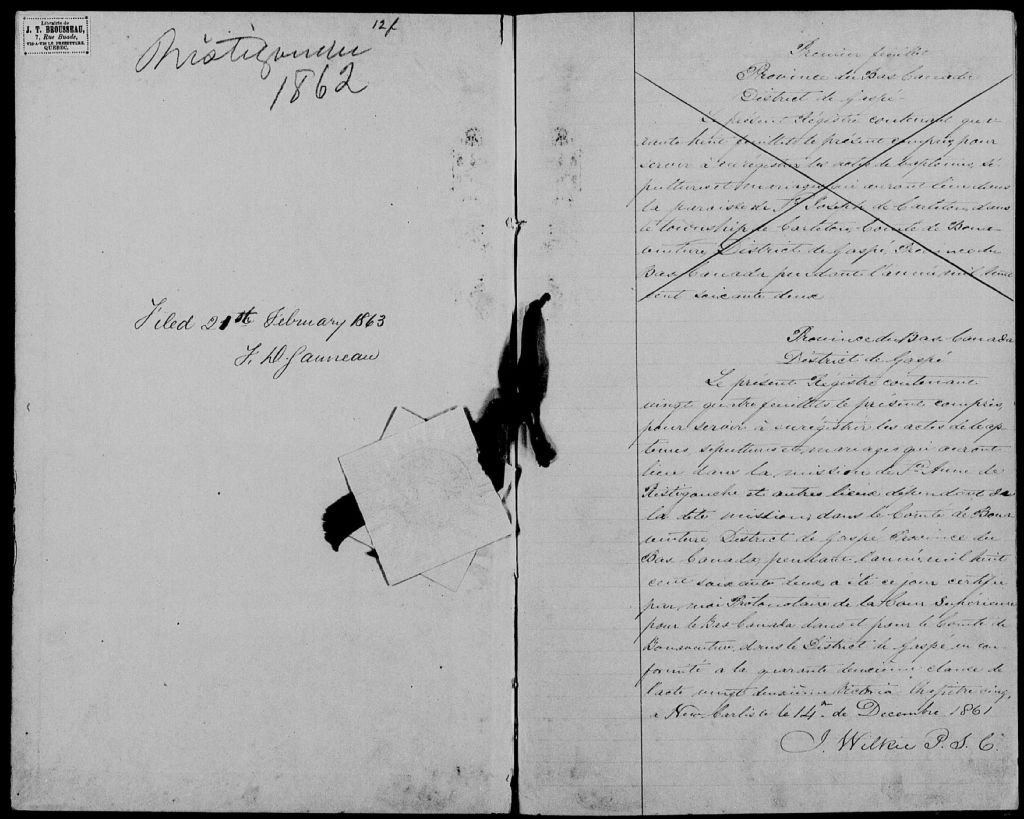 Librairie de
J. T. BROUSSEAU,
7, Rue Buade,
VIS-A-VIS LE PRESBYTERE,
QUEBEC.
12 f
Ristigouche
1862
Filed 21st February 1863
Premier feuillet
Province du Bas Canada
District de Gaspé
Le présent Régistre contenant
feuillets le présent compris, pour
servir à enrégistrer les actes de baptêmes, sé
pultures et mariages qui auront lieu dans
la paroisse de St Joseph de Carleton, dans
le township de Carleton, Comté de Bona
venture, District de Gaspé Province du
Bas Canada pendant l'année mil huit
cent soixante deux
Province du Bas Canada
District de Gaspé
Le présent Régistre contenant
vingt quatre feuillets le présent compris,
pour servir à enrégistrer les actes de bap
têmes, sépultures et mariages qui auront
lieu dans la mission de Ste Anne de
Ristigouche et autres lieux dépendant de
la dite mission, dans le Comté de Bona
venture, District de Gaspé Province du
Bas Canada, pendant l'année mil huit
cent soixante deux, a été ce jour certifié
par moi Protonotaire de la Cour Supérieure
pour le Bas Canada dans et pour le Comté de
Bonaventure, dans le District de Gaspé en con
formité a la quarante deuxième clause de
l'acte vingt deuxième Victoria Chapitre cinq,
a New Carlisle le 14me de Decembre 1861
J. Wilkie P. S. C.